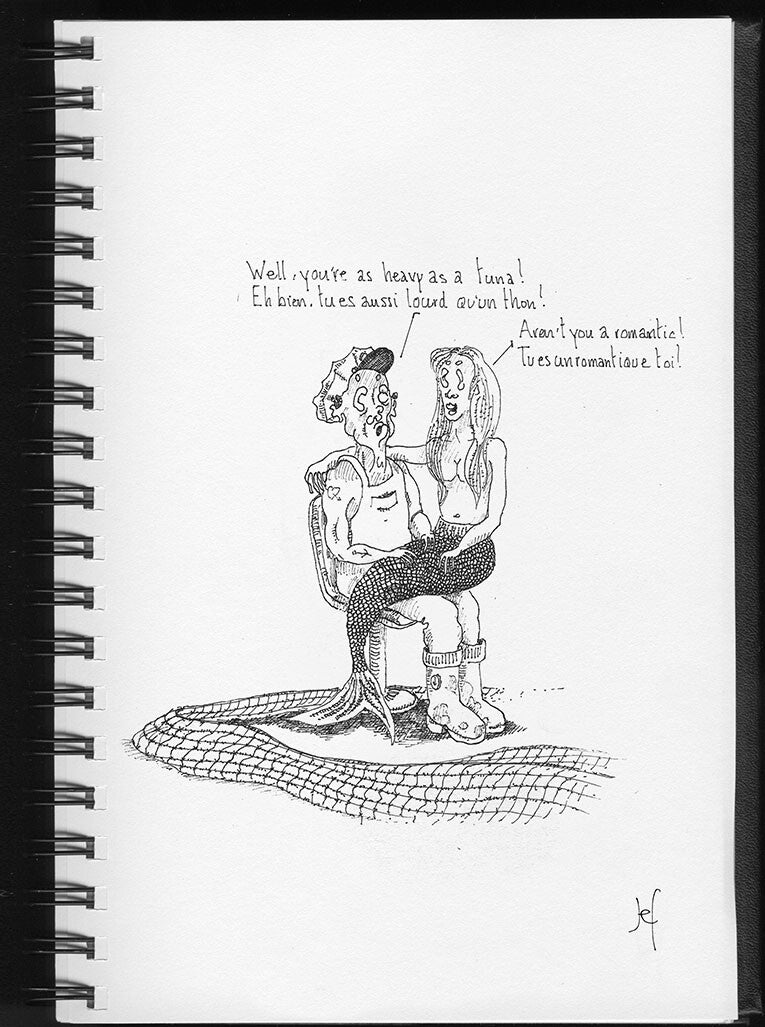 Well, you're as heavy as a tuna!
Eh bien, tu es aussi lourd qu'un thon!
Aren't you a romantic!
Tu es un romantique toi!
Jef